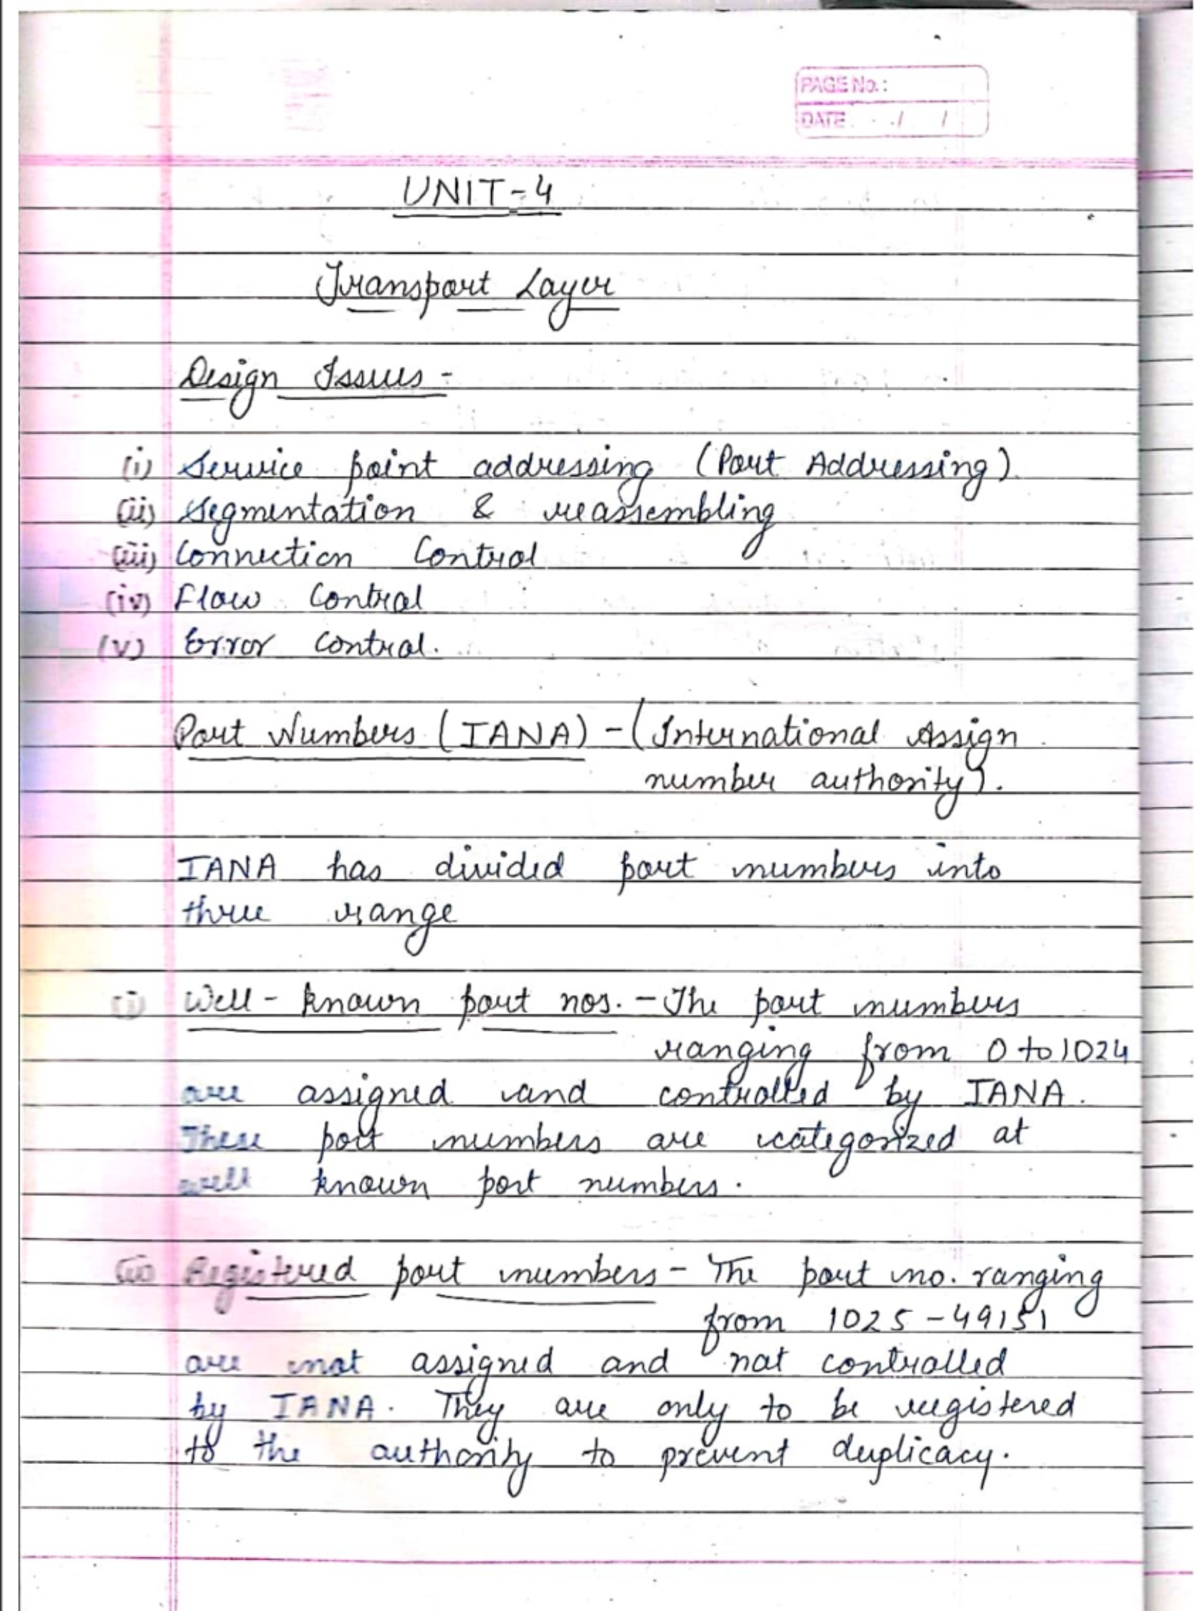 PAGE No.:
DATE / /
UNIT-4
Transport Layer
Design Issues -
(i) Service point addressing (Port Addressing)
(ii) Segmentation & reassembling
(iii) Connection Control
(iv) Flow Control
(v) Error control.
Port Numbers (IANA) - (International Assign
number authority).
IANA has divided port numbers into
three range
(i) Well - known port nos. - The port numbers
ranging from 0 to 1024
are assigned and controlled by IANA.
These port numbers are categorized at
well known port numbers.
(ii) Registered port numbers - The port no. ranging
from 1025 - 49151
are not assigned and not controlled
by IANA. They are only to be registered
to the authority to prevent duplicacy.